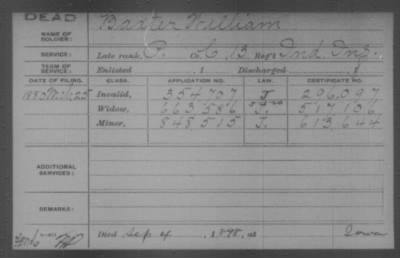 DEAD
NAME OF SOLDIER: Baxter William
SERVICE: Late rank, P. Co. C, 13 Reg't Ind. Inf.
TERM OF SERVICE: Enlisted 1 Discharged 1
DATE OF FILING. CLASS. APPLICATION NO. LAW. CERTIFICATE NO.
Invalid, 354.707 J 296.097
Widow, 663.586 517.106
Minor, 848.515 J. 613.644
ADDITIONAL SERVICES:
REMARKS:
Died Sep 1898, at Iowa